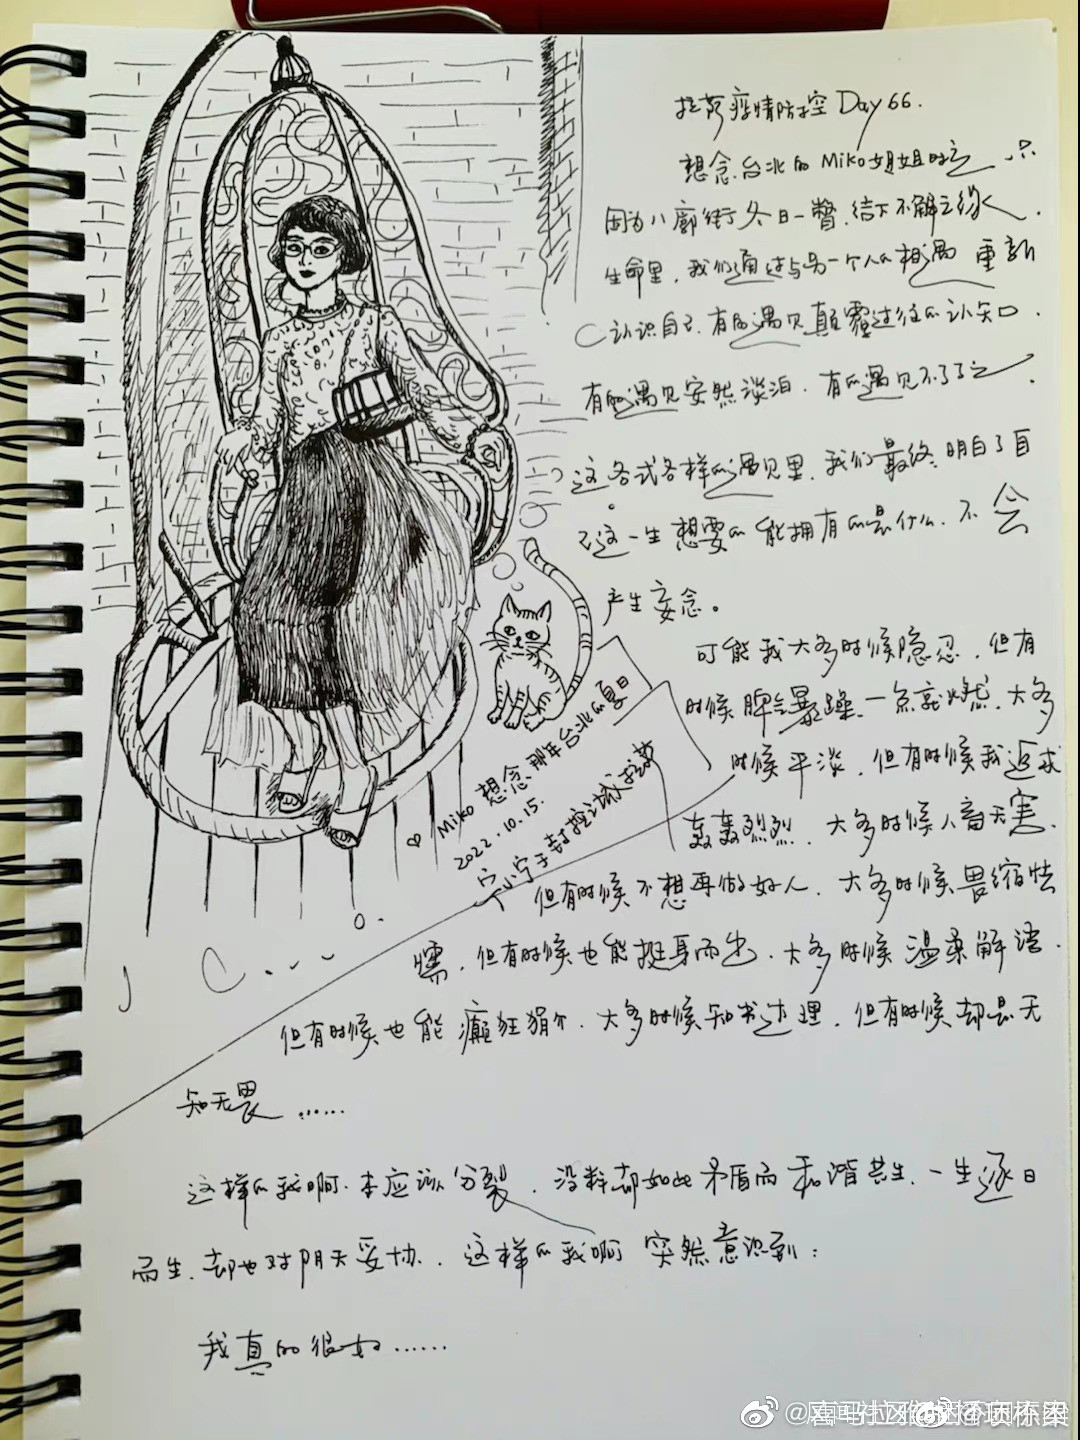 拉萨疫情防控 Day 66.
想念台北的 Miko 姐姐时之
因为八廓街冬日一瞥,结下不解之缘.
生命里,我们通过与另一个人的相遇 重新
认识自己.有的遇见颠覆过往的认知.
有的遇见安然淡泊.有的遇见不了了之.
这各式各样的遇见里,我们最终明白了自
己这一生想要的能拥有的是什么.不会
产生妄念。
可能我大多时候隐忍.但有
时候脾气暴躁一点就燃.大多
时候平淡.但有时候我追求
轰轰烈烈.大多时候人畜无害.
但有时候不想再做好人.大多时候畏缩怯
懦.但有时候也能挺身而出.大多时候温柔解语.
但有时候也能癫狂狷介.大多时候知书达理.但有时候却是无
知无畏……
这样的我啊.本应该分裂.没料却如此矛盾而和谐共生.一生逐日
而生.却也对阴天妥协.这样的我啊 突然意识到:
我真的很好……
♡ Miko 想念那年台北的夏日
2022.10.15.
宁小宁于封控